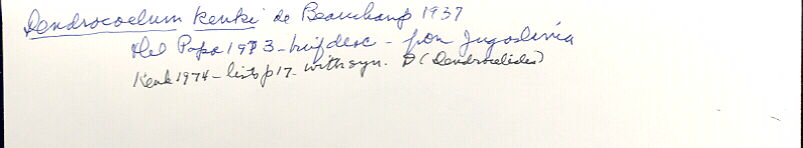 Dendrocoelum kenki de Beauchamp 1937
Del Papa 1973 - brief desc - from Jugoslavia
Kenk 1974 - lists p 17. with syn. D (Dendrocoelides)